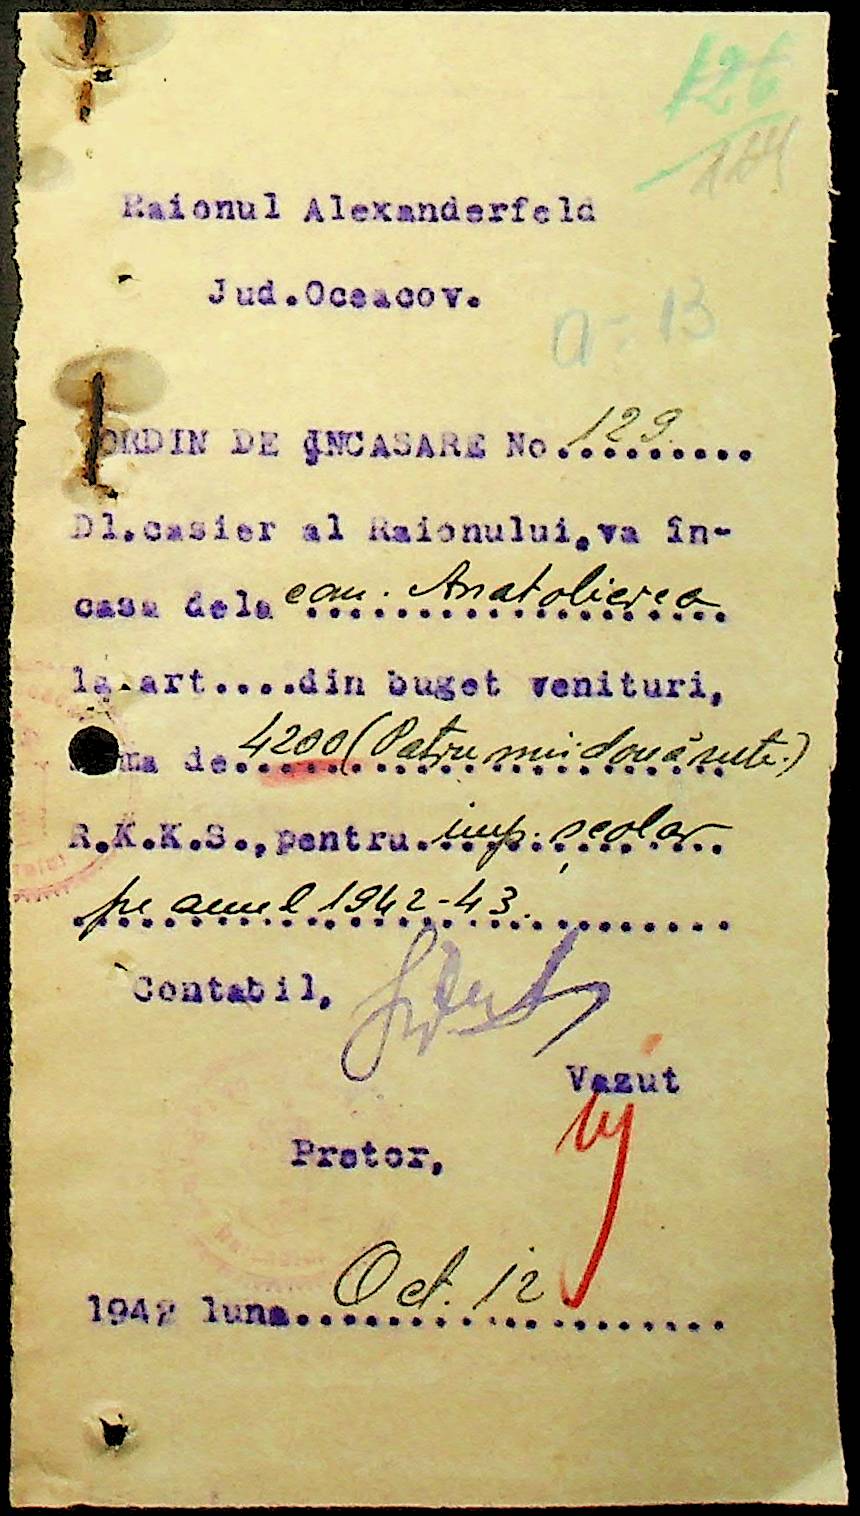 126
Raionul Alexanderfeld
Jud.Oceacov.
a-13
ORDIN DE ÎNCASARE No.129.........
Dl.casier al Raionului,va în-
casa dela com. Anatolievca
la art....din buget venituri,
de 4200 (Patru mii două sute.)
R.K.K.S.,pentru imp. școlar
pe anul 1942-43.
Contabil,
Vazut
Pretor,
1942 luna Oct. 12